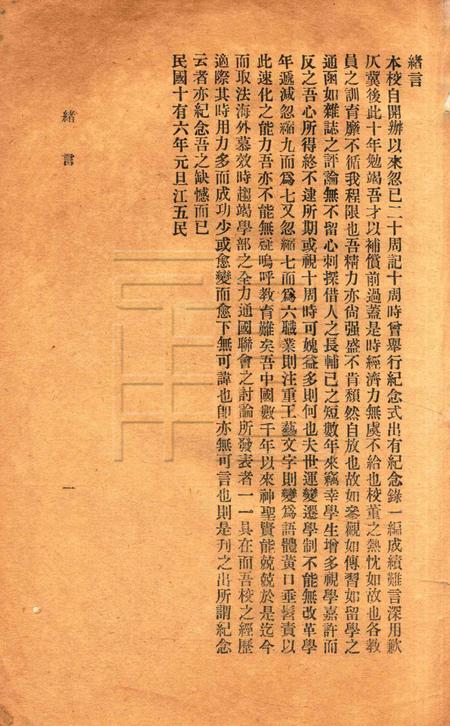 緒言
本校自開辦以來忽已二十周記十周時曾舉行紀念式出有紀念錄一編成績難言深用歉
仄冀後此十年勉竭吾才以補償前過蓋是時經濟力無虞不給也校董之熱忱如故也各敎
員之訓育靡不循我程限也吾精力亦尙强盛不肯頹然自放也故如參觀如傳習如留學之
通函如雜誌之評論無不留心刺探借人之長輔己之短數年來竊幸學生增多視學嘉許而
反之吾心所得終不逮所期或視十周時可媿益多則何也夫世運變遷學制不能無改革學
年遞減忽縮九而爲七又忽縮七而爲六職業則注重工藝文字則變爲語體黃口垂髫責以
此速化之能力吾亦不能無疑嗚呼敎育難矣吾中國數千年以來神聖賢能兢兢於是迄今
而取法海外慕效時趨竭學部之全力通國聯會之討論所發表者一一具在而吾校之經歷
適際其時用力多而成功少或愈變而愈下無可諱也卽亦無可言也則是刋之出所謂紀念
云者亦紀念吾之缺憾而已
民國十有六年元旦江五民
緒言
一